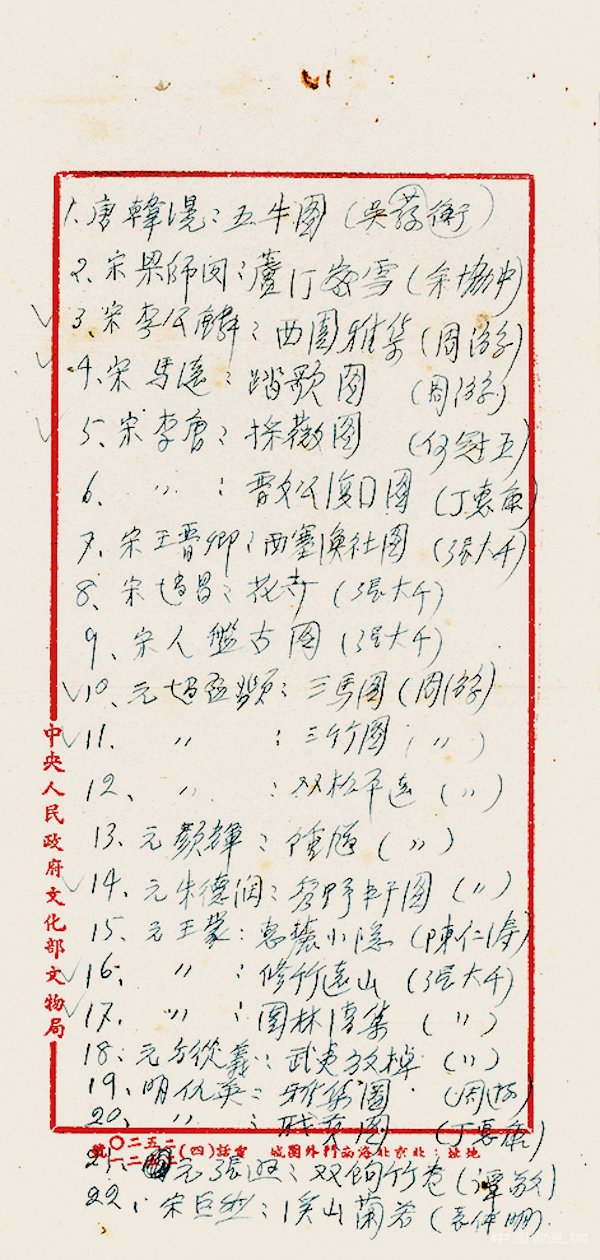 1. 唐韓滉：五牛圖（吳蘅衡）
2. 宋梁師閔：蘆汀密雪（余協中）
3. 宋李公麟：西園雅集（周游）
4. 宋馬遠：踏歌圖（周游）
5. 宋李唐：採薇圖（何冠五）
6. 〃：晉文公復囗圖（丁惠康）
7. 宋王晉卿：西塞漁社圖（張大千）
8. 宋趙昌：花卉（張大千）
9. 宋人盤古圖（張大千）
10. 元趙孟頫：三馬圖（周游）
11. 〃：三竹圖（〃）
12. 〃：双松平遠（〃）
13. 元顏輝：鍾馗（〃）
14. 元朱德潤：秀野軒圖（〃）
15. 元王蒙：惠麓小隱（陳仁濤）
16. 〃：修竹遠山（張大千）
17. 〃：園林清集（〃）
18. 元方從義：武夷放棹（〃）
19. 明仇英：雅集圖（周游）
20. 〃：職貢圖（丁惠康）
21. 元張遜：双鉤竹卷（譚敬）
22. 宋巨然：溪山蘭若（袁仲明）
中央人民政府文化部文物局
地址：北京北海南門外團城 電話（四）